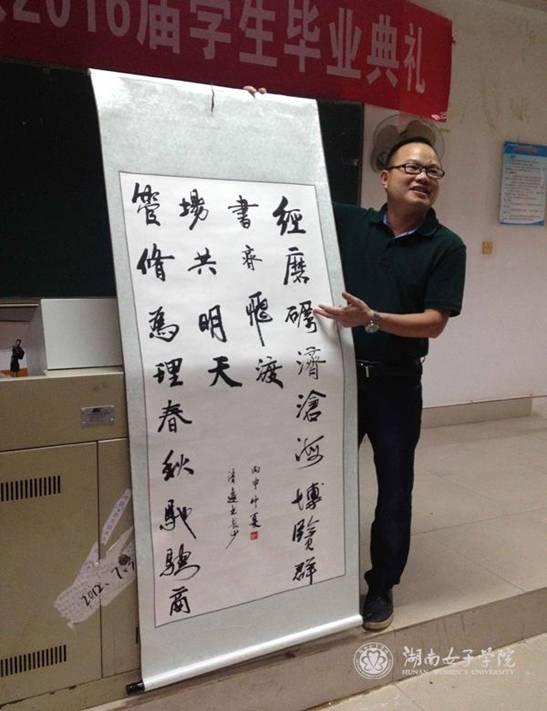 2016届学生毕业典礼
經磨礪濟滄海博覽群
書齊飛渡
管脩為理春秋馳騁商
場共明天
丙申仲夏
書長沙
2012.7.
湖南女子学院
HUNAN WOMEN'S UNIVERSITY